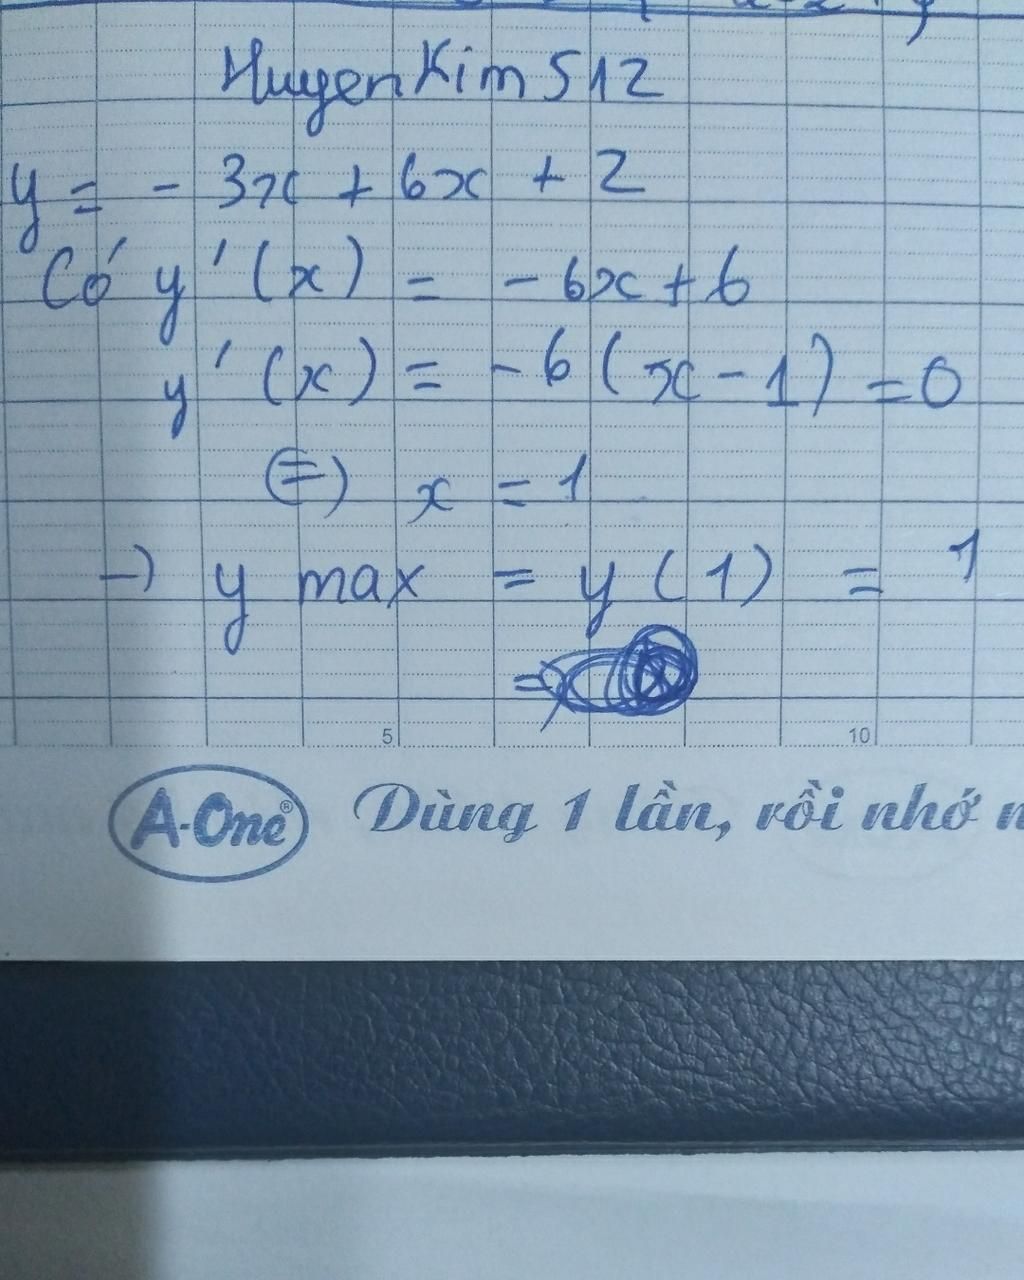 HuyenKim512
y = - 3x + 6x + 2
Có y'(x) = - 6x + 6
y'(x) = - 6 (x - 1) = 0
(=) x = 1
-) y max = y (1) = 1
=
5 10
A-One® Dùng 1 lần, rồi nhớ